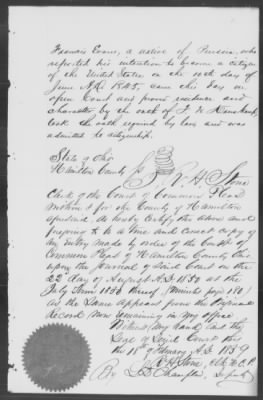 Francis Evans, a native of Prussia, who
reported his intention to become a citizen
of the United States on the 10th day of
June A.D. 1845, came this day in
open Court and proved residence and
character by the oath of F. W.
took the oath required by law and was
admitted to citizenship.
State of Ohio
Hamilton County
R H Stone
Clerk of the Court of Common Pleas
within & for the County of Hamilton
aforesaid do hereby Certify the above and
foregoing to be a true and correct copy of
an entry made by order of the Court of
Common Pleas of Hamilton County Ohio
upon the Journal of said Court on the
22 day of August A.D. 1850 as the
July Term thereof
as the same appears from the Original
Record now remaining in my office
Witness my hand and the
Seal of said Court this
the 18th of February A.D. 1859
R H Stone, Clk H.C.C.P.
By Deputy